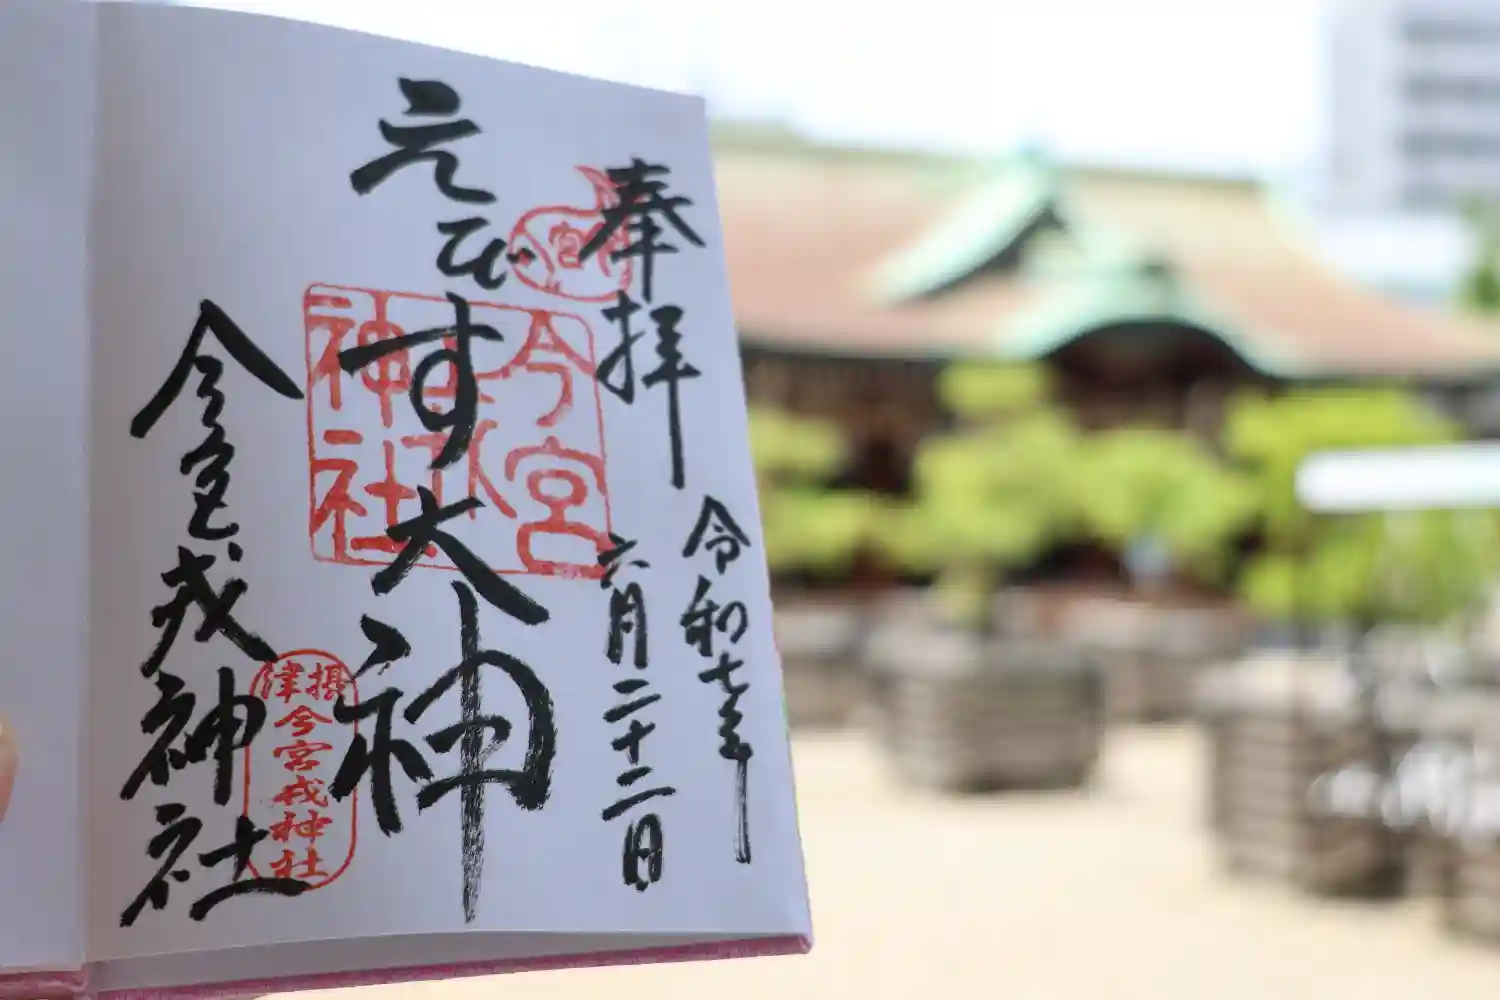 奉拝
令和七年
六月二十二日
えびす大神
今宮戎神社
今宮
戎
神社
宮
摂津
今宮戎神社